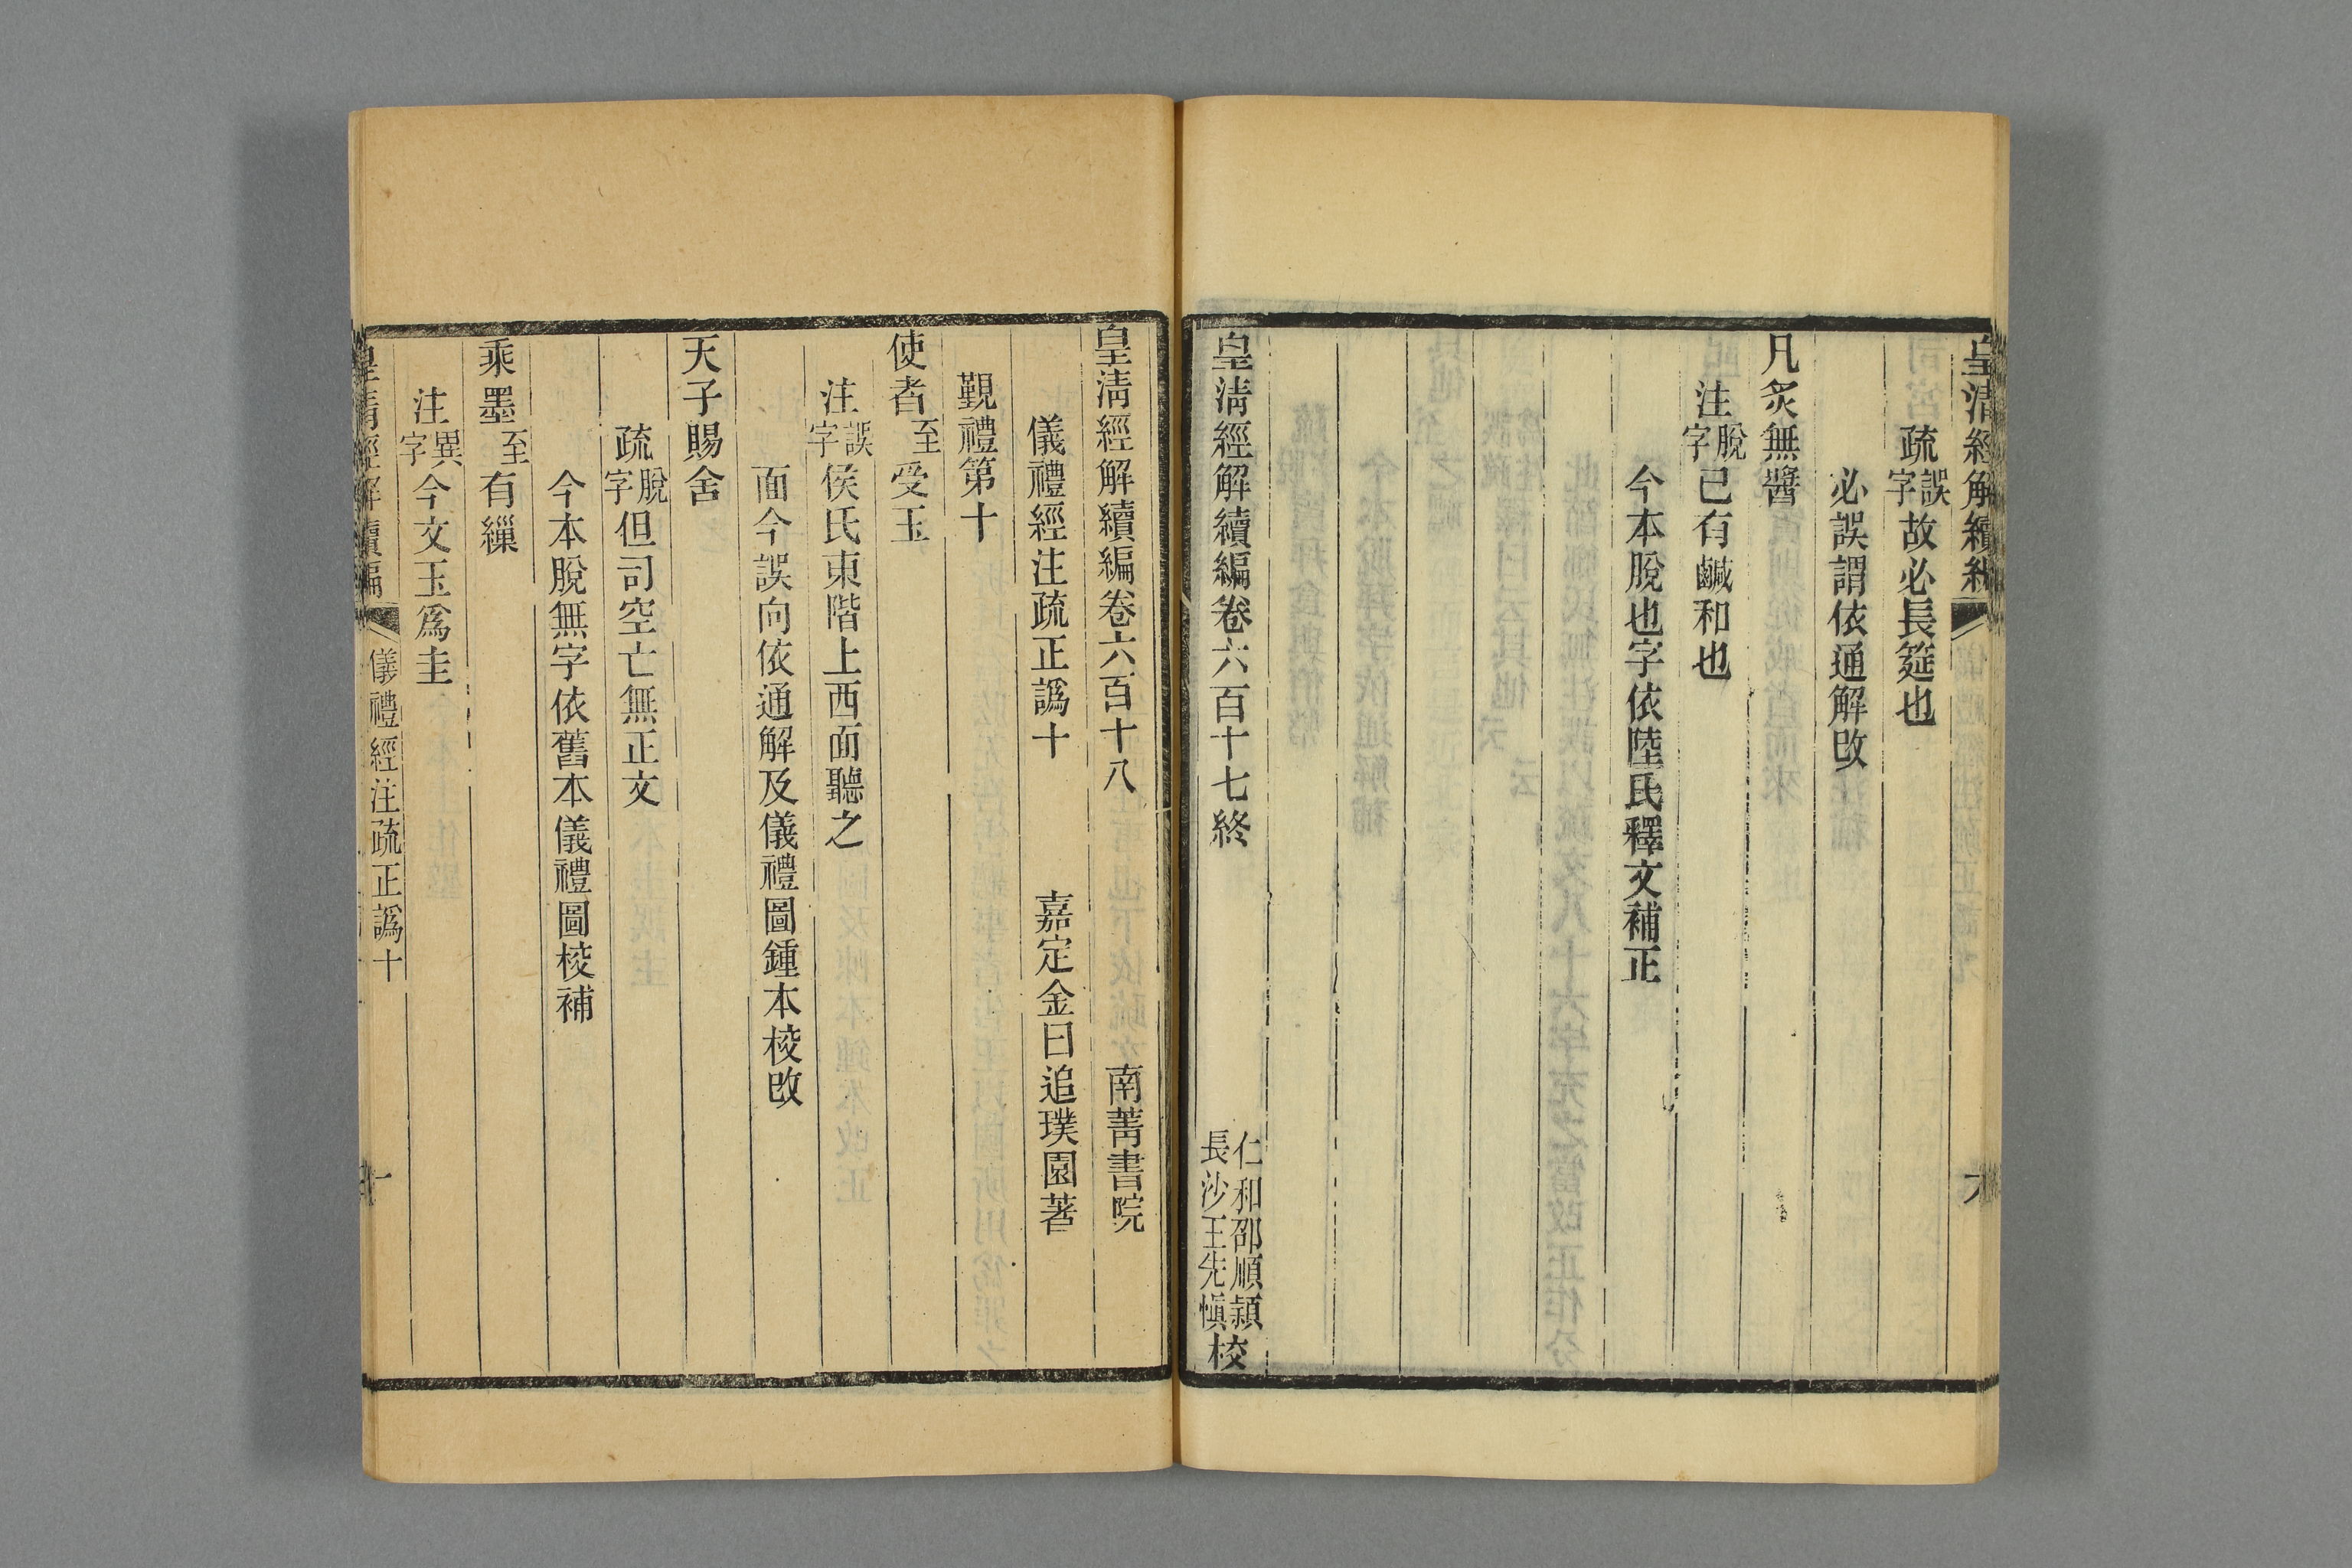 皇清經解續編
疏誤字故必長筵也
必誤謂依通解改
凡炙無醬
注脫字已有鹹和也
今本脫也字依陸氏釋文補正
皇清經解續編卷六百十七終
仁和邵順頴
長沙王先愼
校
皇清經解續編卷六百十八
南菁書院
儀禮經注疏正譌十
嘉定金曰追璞園著
覲禮第十
使者至受玉
注誤字侯氏東階上西面聽之
面今誤向依通解及儀禮圖鍾本校改
天子賜舍
疏脫字但司空亡無正文
今本脫無字依舊本儀禮圖校補
乘墨至有繅
注異字今文玉爲圭
皇清經解續編
儀禮經注疏正譌十
一